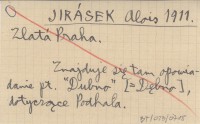 JIRÁSEK Alois 1911.
Zlatá Praha.
Znajduje się tam opowia-
danie pt. "Dubno" [= Dębno],
dotyczące Podhala.